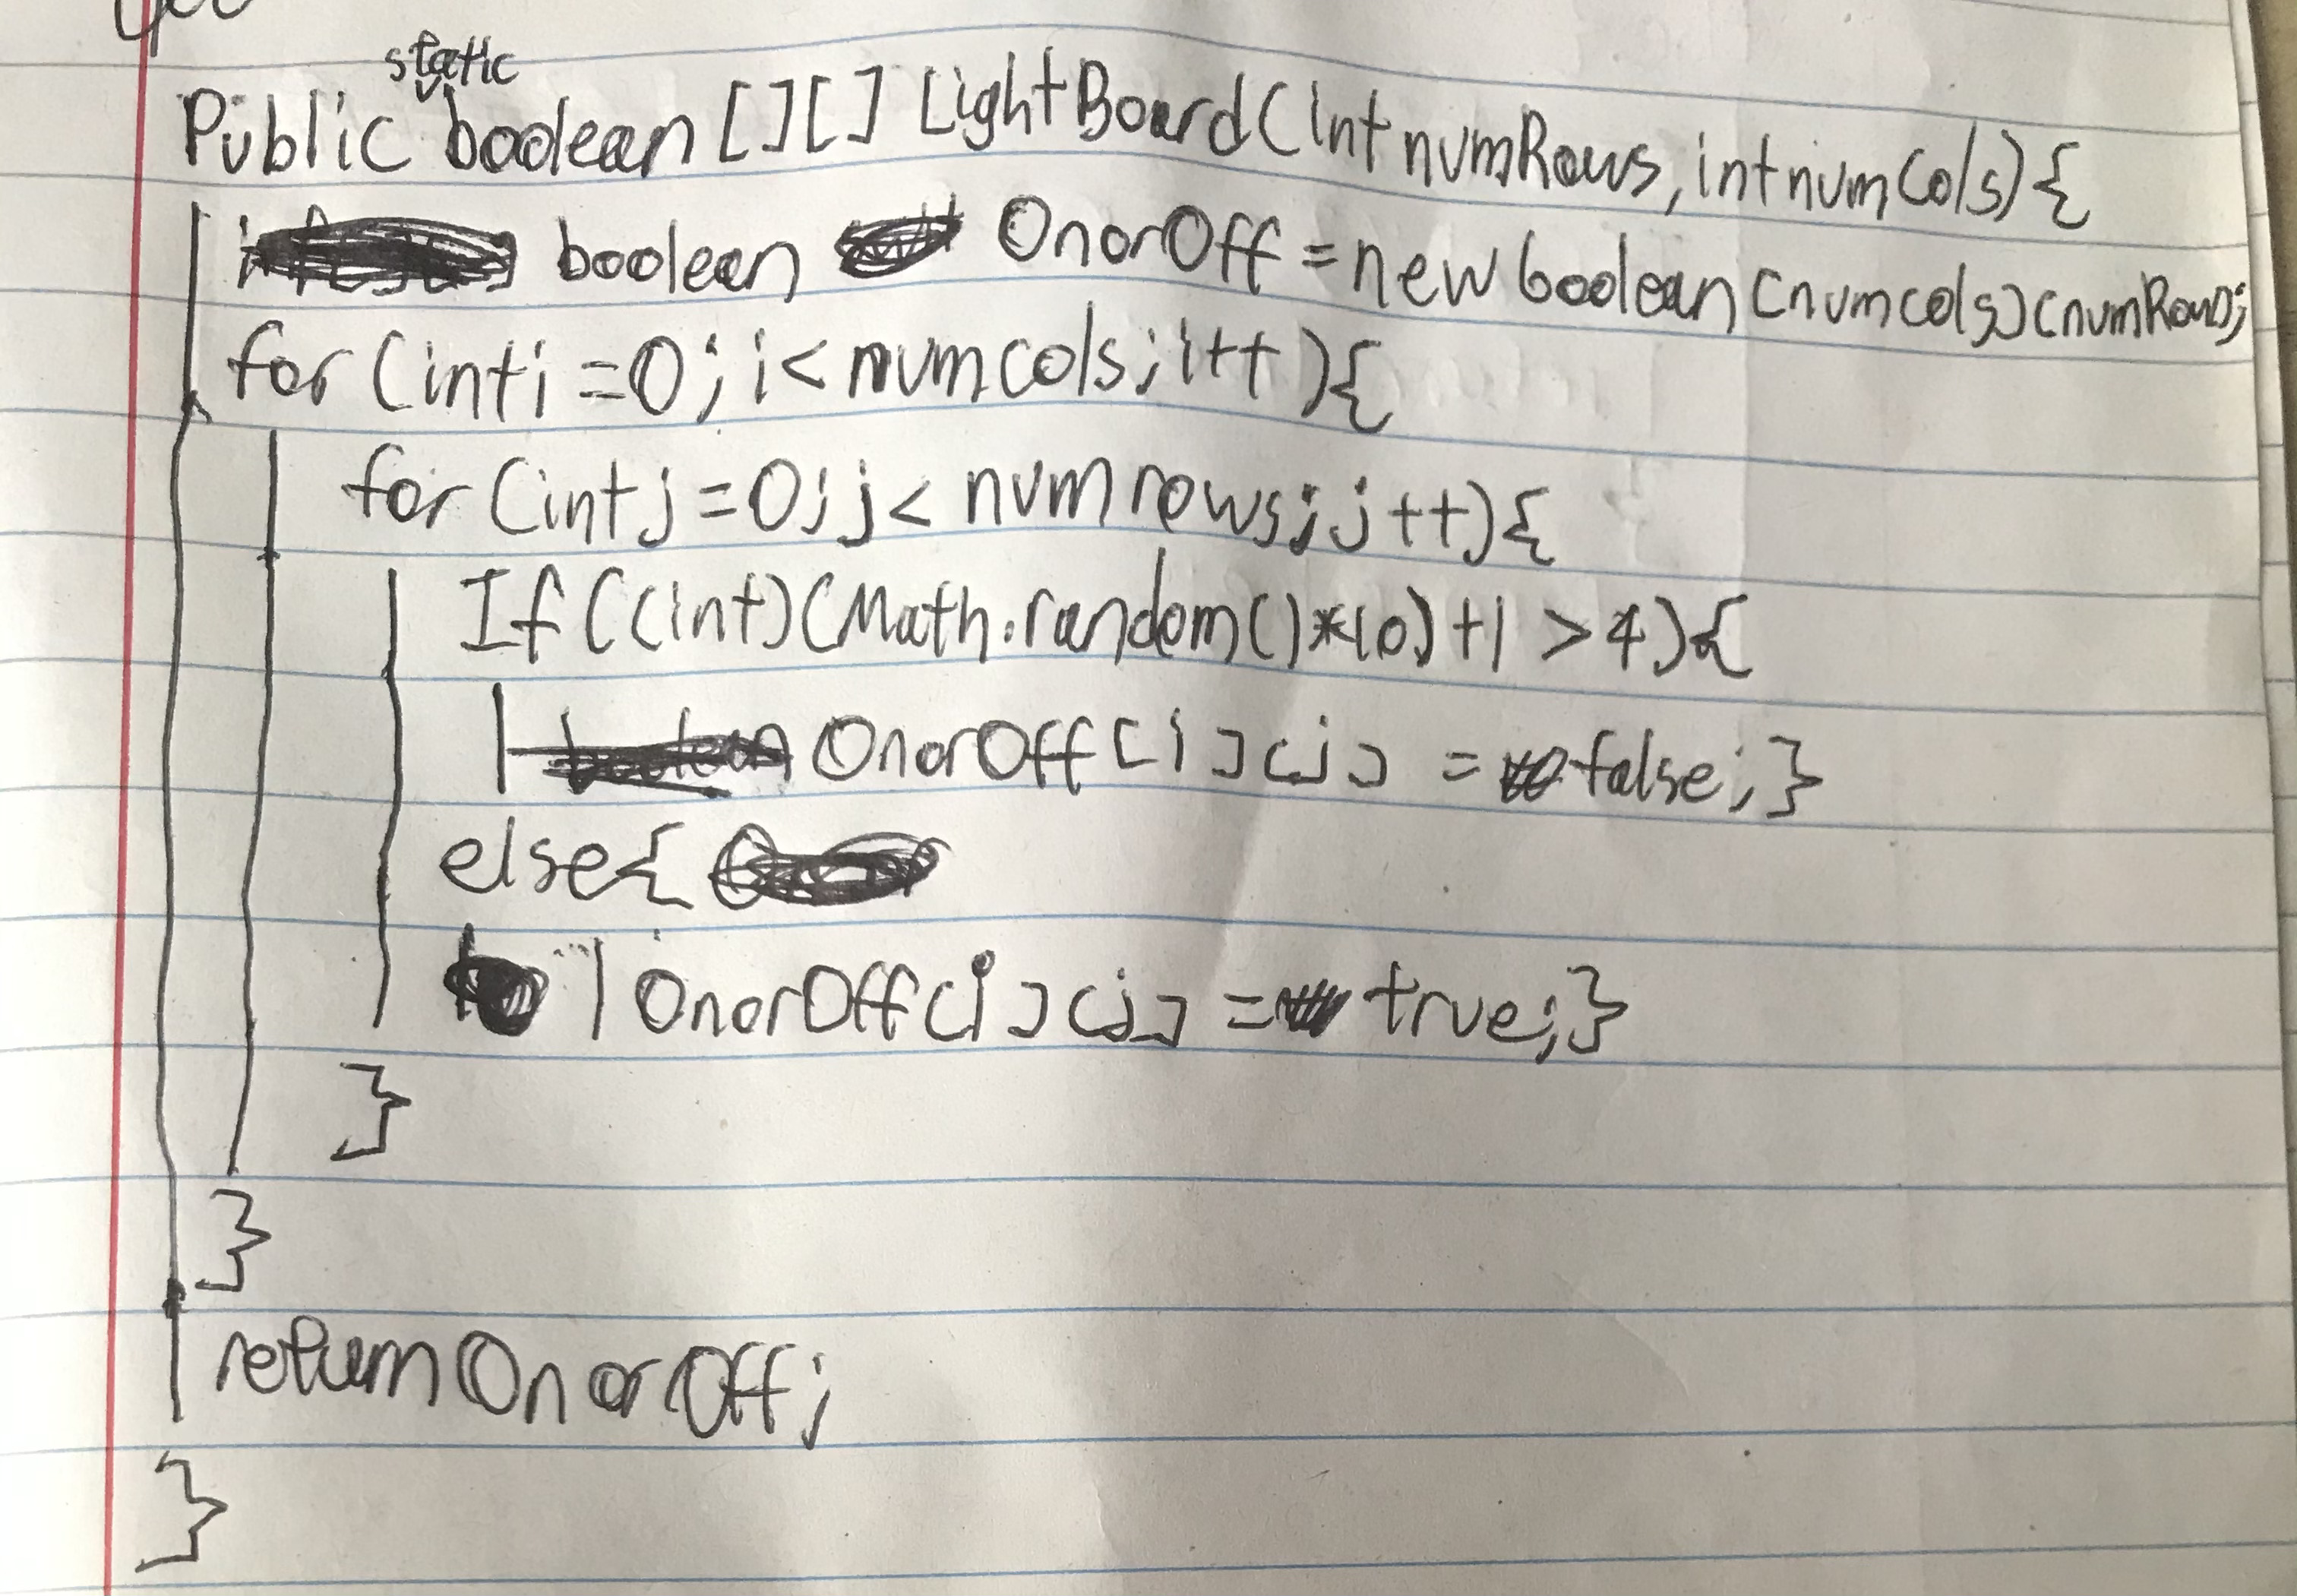 static
Public boolean [][] LightBoard(int numRows, int numCols){
boolean OnorOff = new boolean [numcols][numRows];
for (int i = 0; i < numcols; i++ ){
for (int j = 0; j < numrows; j++){
If ((int)(Math.random()*10)+1 > 4){
OnorOff[i][j] = false;}
else{
OnorOff[i][j] = true;}
}
}
return OnorOff;
}